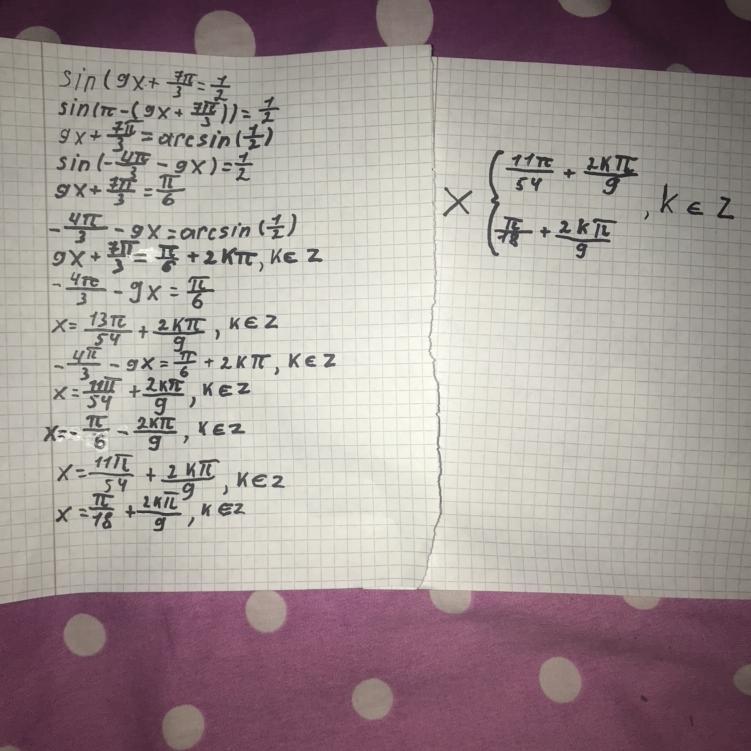 sin(9x + 7π/3 = 1/2
sin(π - (9x + 7π/3)) = 1/2
9x + 7π/3 = arcsin(1/2)
sin(-4π/3 - 9x) = 1/2
9x + 7π/3 = π/6
-4π/3 - 9x = arcsin(1/2)
9x + 7π/3 = π/6 + 2kπ, k∈Z
-4π/3 - 9x = π/6
x = 13π/54 + 2kπ/9, k∈Z
-4π/3 - 9x = π/6 + 2kπ, k∈Z
x = 11π/54 + 2kπ/9, k∈Z
x = -π/6 - 2kπ/9, k∈Z
x = 11π/54 + 2kπ/9, k∈Z
x = π/18 + 2kπ/9, k∈Z
X { 11π/54 + 2kπ/9
π/18 + 2kπ/9 , k∈Z